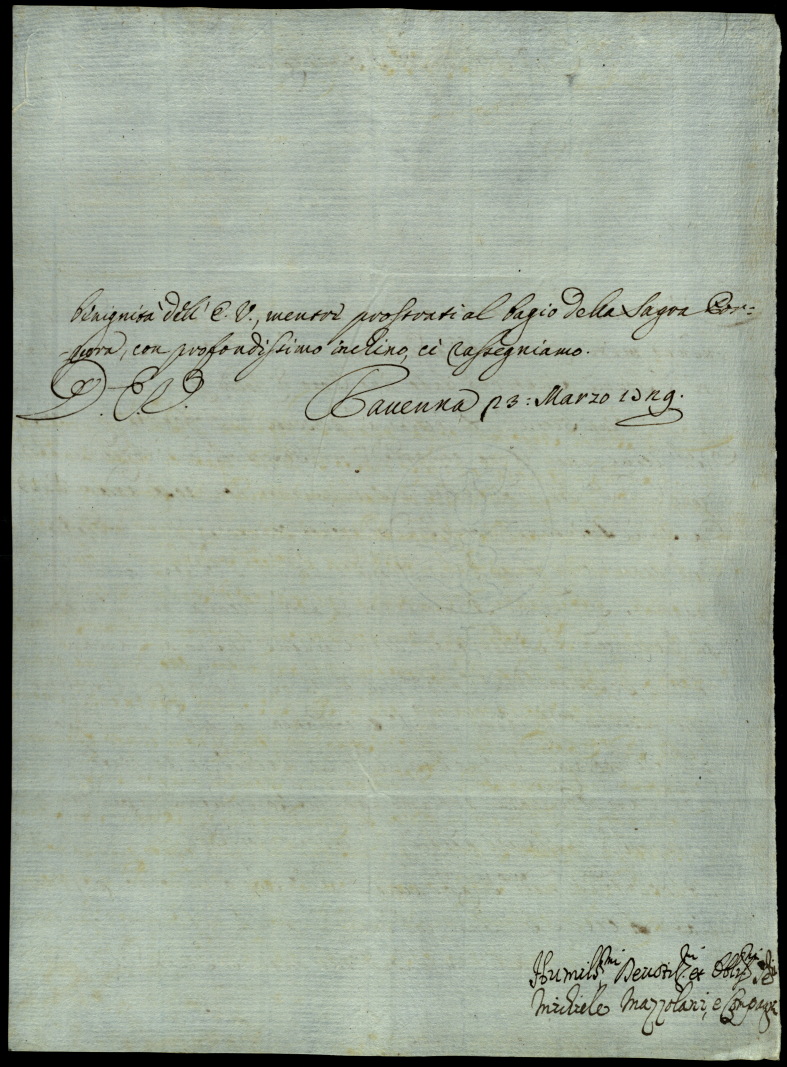 benignità dell' E. V., mentre prostrati al bagio della Sagra Por=
=pora, con profondissimo inchino, ci rassegniamo.
D. E. V. Ravenna 23: Marzo 1729.
Humiliss.mi Devotiss.mi et Obblig.mi
Michiele Mazzolani, e Compagni